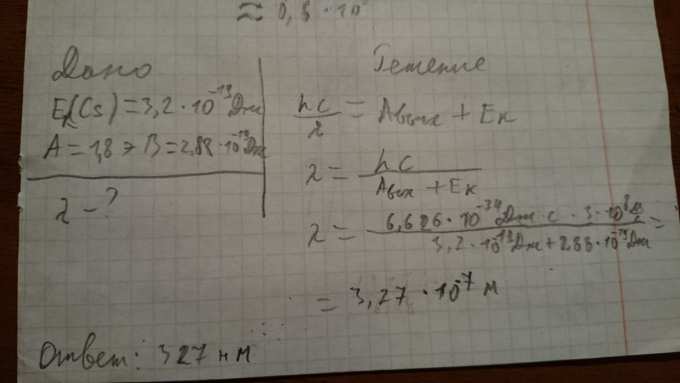 ≈ 0,8 · 10
Дано
Eк(Cs) = 3,2 · 10⁻¹⁹ Дж
A = 1,8 эВ = 2,88 · 10⁻¹⁹ Дж
λ - ?
Решение
hc/λ = Aвых + Eк
λ = hc/(Aвых + Eк)
λ = (6,626 · 10⁻³⁴ Дж · с · 3 · 10⁸ м/с)/(3,2 · 10⁻¹⁹ Дж + 2,88 · 10⁻¹⁹ Дж) =
= 3,27 · 10⁻⁷ м
Ответ: 327 нм